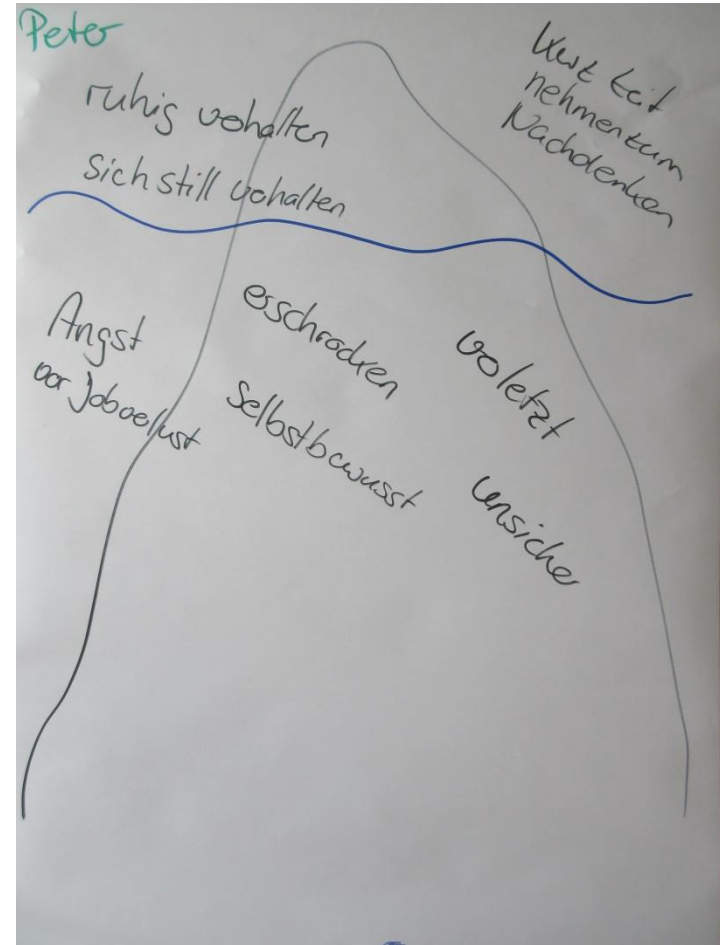 Peter
ruhig verhalten
sich still verhalten
kurz Zeit
nehmen zum
Nachdenken
Angst
vor Jobverlust
erschrocken
selbstbewusst
verletzt
unsicher